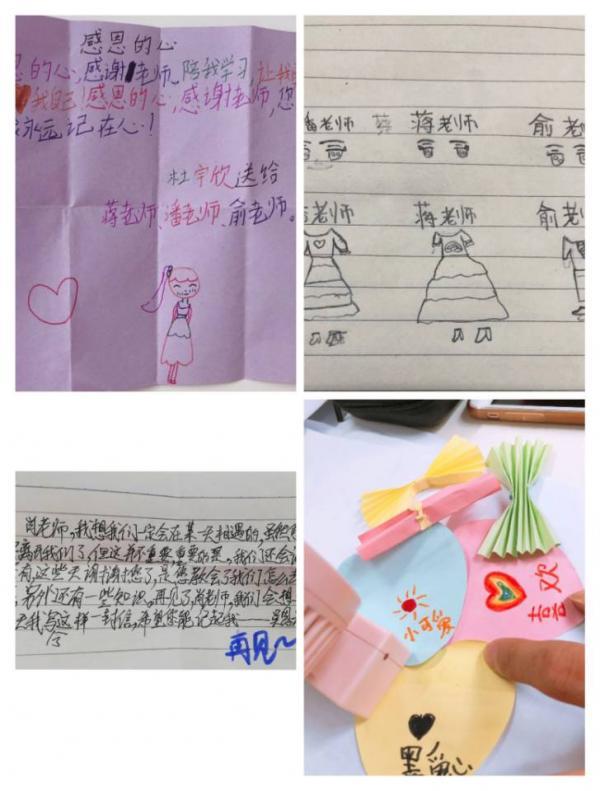 感恩的心
恩的心,感谢老师、陪我学习,让我
我自己!感恩的心,感谢老师,您
永远记在人心!
杜宇欣送给
蒋老师、潘老师、俞老师。
潘老师 蒋 蒋老师 俞老
老师 蒋老师 俞老
尚老师,我想我们一定会在某天相遇的,虽然
离开我们了,但这并不重要,重要的是,我们还会
有,这些天谢谢您了,是您教会了我们怎么
另外还有一些知识。再见了尚老师,我们会想
天我写这样一封信,希望您能记起我——吴
今
再见~
小可爱
喜欢
黑爱心